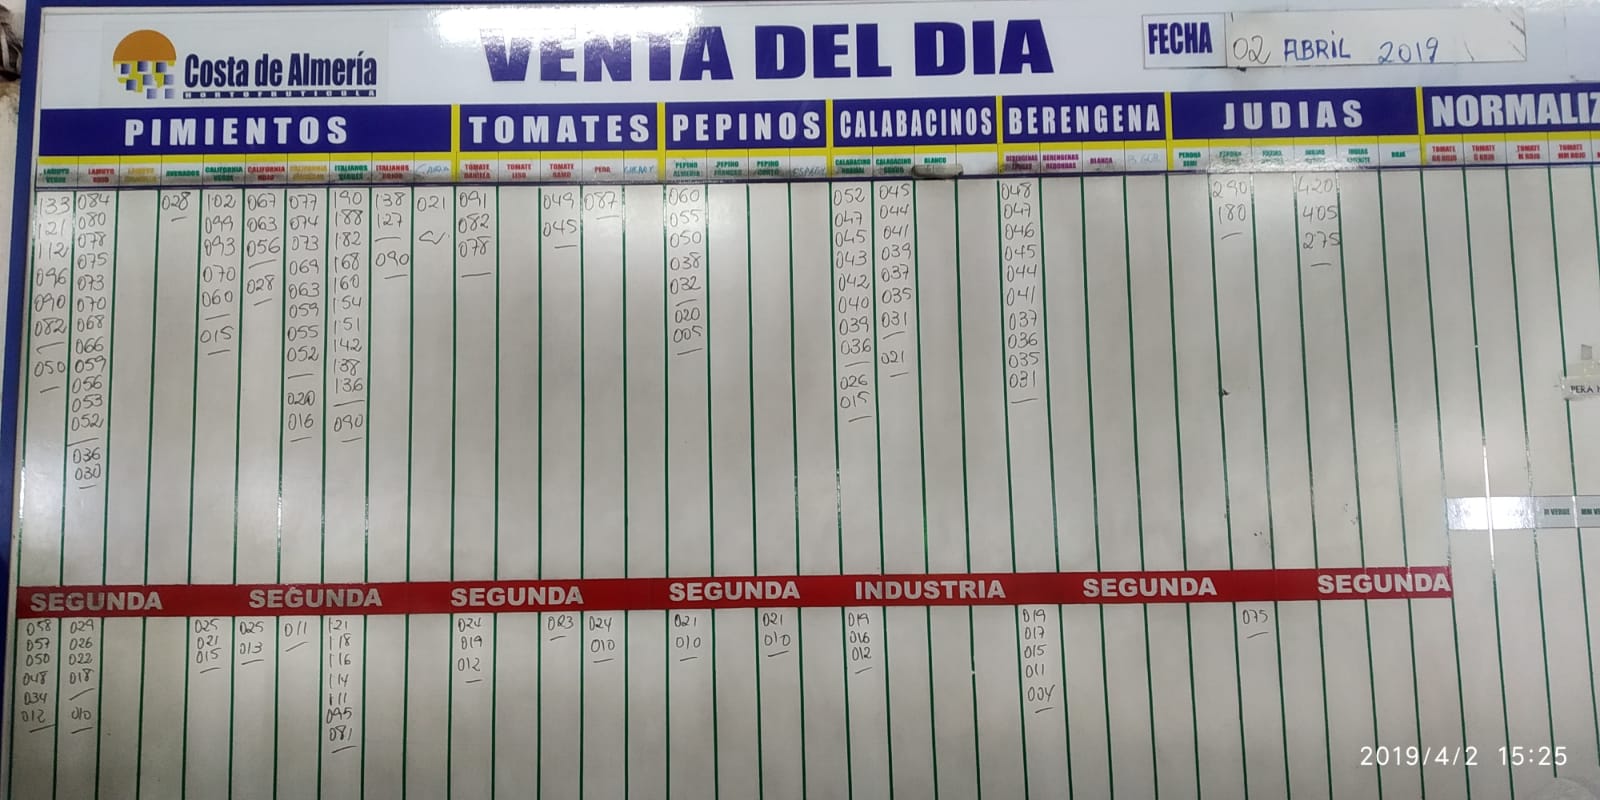 Costa de Almería
HORTOFRUTICOLA
VENTA DEL DIA
FECHA 02 ABRIL 2019
PIMIENTOS TOMATES PEPINOS CALABACINOS BERENGENA JUDIAS NORMALIZ
LAMUYO VERDE LAMUYO ROJO CALIFORNIA VERDE CALIFORNIA ROJO ITALIANOS ITALIANOS TOMATE DANIELA TOMATE LISO TOMATE RAMO PERA PEPINO ALMERIA PEPINO FRANCES PEPINO CORTO CALABACINO CALABACINO BLANCO BERENGENAS BERENGENAS REDONDAS BLANCA PERONA ROJA TOMATE GG ROJO TOMATE G ROJO TOMATE M ROJO TOMATE MM ROJO
133 084 028 102 067 077 190 138 021 091 049 087 060 052 045 048 290 420
121 080 099 063 074 188 127 082 045 055 047 044 047 180 405
112 078 093 056 073 182 078 050 045 041 046 275
096 075 070 028 069 168 090 038 043 039 045
090 073 060 063 160 032 042 037 044
082 070 015 059 154 020 040 035 041
050 068 055 151 005 039 031 037
066 052 142 036 021 036
059 020 138 026 035
056 016 136 015 031
053 090
052
036
030
SEGUNDA SEGUNDA SEGUNDA SEGUNDA INDUSTRIA SEGUNDA SEGUNDA
058 029 025 025 011 121 024 023 024 021 021 019 019 075
057 026 021 013 118 019 010 010 010 016 017
050 022 015 116 012 012 015
048 018 114 011
034 010 111 004
012 095
081
PERA
M VERDE MM VE
2019/4/2 15:25